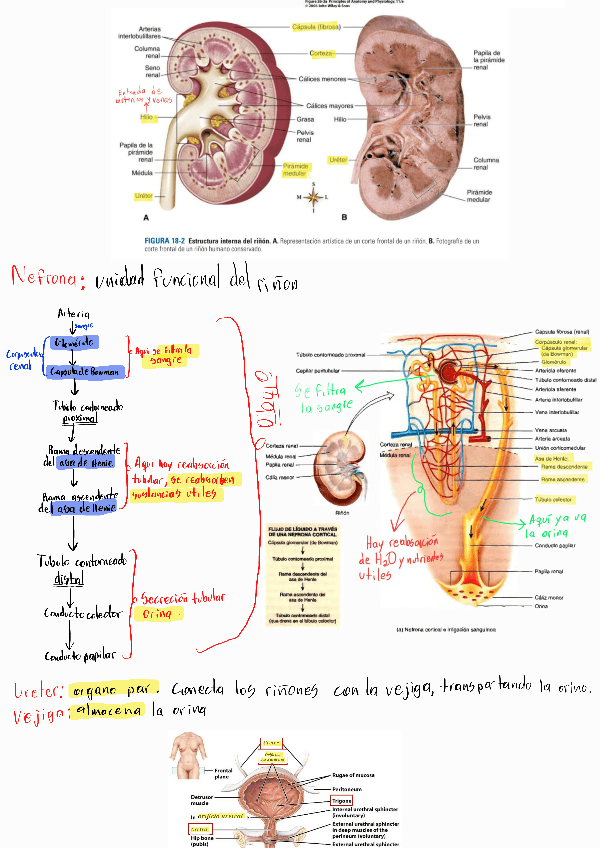 Figure 26-3a Principles of Anatomy and Physiology, 11/e
© 2006 John Wiley & Sons
Arterias
interlobulillares
Columna
renal
Seno
renal
Entrada de
arterias y venas
Hilio
Papila de la
pirámide
renal
Médula
Uréter
Cápsula (fibrosa)
Corteza
Cálices menores
Cálices mayores
Grasa
Hilio
Pelvis
renal
Pirámide
medular
Uréter
Papila de
la pirámide
renal
Pelvis
renal
Columna
renal
Pirámide
medular
S
M
L
I
A
B
FIGURA 18-2 Estructura interna del riñón. A. Representación artística de un corte frontal de un riñón. B. Fotografía de un
corte frontal de un riñón humano conservado.
Nefrona: unidad funcional del riñón
Arteria
sangre
Glomérulo
Capsula de Bowman
Corpúsculo
renal
Aqui se filtra la
sangre
Túbulo contorneado
proximal
Rama descendente
del asa de Henle
Rama ascendente
del asa de Henle
Aqui hay reabsorción
tubular, se reabsorben
sustancias utiles
Tubulo contorneado
distal
Conducto colector
Conducto papilar
Secreción tubular
orina.
Túbulo contorneado proximal
Capilar peritubular
Se filtra
la sangre
Corteza renal
Médula renal
Papila renal
Cáliz menor
Riñón
Corteza renal
Médula renal
FLUJO DE LÍQUIDO A TRAVÉS
DE UNA NEFRONA CORTICAL
Cápsula glomerular (de Bowman)
Túbulo contorneado proximal
Rama descendente del
asa de Henle
Rama ascendente del
asa de Henle
Túbulo contorneado distal
(que drena en el túbulo colector)
Hay reabsorción
de H2O y nutrientes
utiles
Cápsula fibrosa (renal)
Corpúsculo renal:
Cápsula glomerular
(de Bowman)
Glomérulo
Arteriola eferente
Túbulo contorneado distal
Arteriola aferente
Arteria interlobulillar
Vena interlobulillar
Vena arcuata
Arteria arcuata
Unión corticomedular
Asa de Henle:
Rama descendente
Rama ascendente
Túbulo colector
Aqui ya va
la orina
Conducto papilar
Papila renal
Cáliz menor
Orina
(a) Nefrona cortical e irrigación sanguínea
Ureter: organo par. Conecta los riñones con la vejiga, transportando la orina.
Vejiga: almacena la orina
Frontal
plane
Detrusor
muscle
Hip bone
(pubis)
Rugae of mucosa
Peritoneum
Trigone
Internal urethral sphincter
(involuntary)
External urethral sphincter
in deep muscles of the
perineum (voluntary)
External urethral sphincter